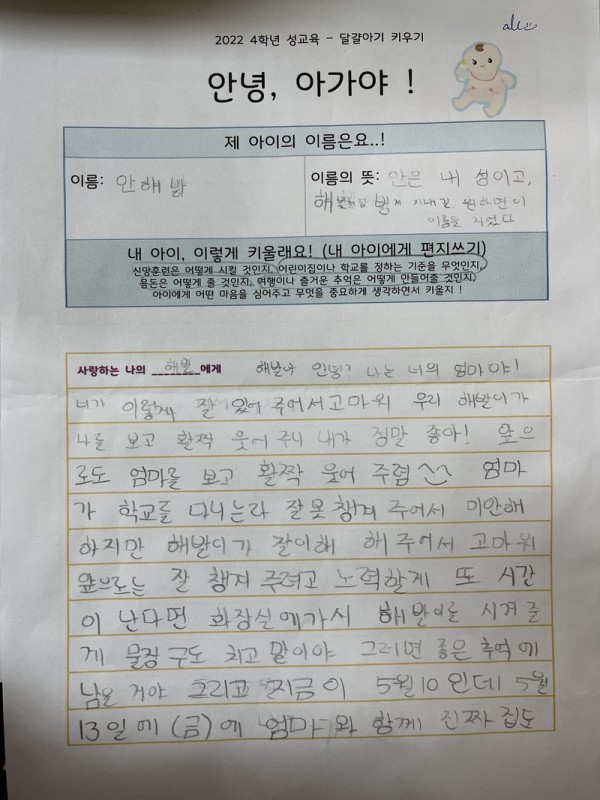 2022 4학년 성교육 - 달걀아기 키우기
안녕, 아가야 !
제 아이의 이름은요..!
이름: 안해밝
이름의 뜻: 안은 내 성이고,
지내길 원하면 이
이름을 지었다
내 아이, 이렇게 키울래요! (내 아이에게 편지쓰기)
신앙훈련은 어떻게 시킬 것인지, 어린이집이나 학교를 정하는 기준을 무엇인지,
용돈은 어떻게 줄 것인지, 여행이나 즐거운 추억은 어떻게 만들어줄 것인지,
아이에게 어떤 마음을 심어주고 무엇을 중요하게 생각하면서 키울지 !
사랑하는 나의 해밝에게 해밝아 안녕? 나는 너의 엄마야!
너가 이렇게 잘 있어 주어서 고마워 우리 해밝이가
나를 보고 활짝 웃어 주니 내가 정말 좋아! 앞으
로도 엄마를 보고 활짝 웃어 주렴 ^^ 엄마
가 학교를 다니는라 잘 못 챙겨 주어서 미안해
하지만 해밝이가 잘 이해 해 주어서 고마워
앞으로는 잘 챙겨 주려고 노력할게 또 시간
이 난다면 화장실에 가서 해밝이를 시겨 줄
게 물장구도 치고 말이야 그러면 좋은 추억에
남을 거야 그리고 지금이 5월 10인데 5월
13일에 (금)에 엄마와 함께 진짜 집도